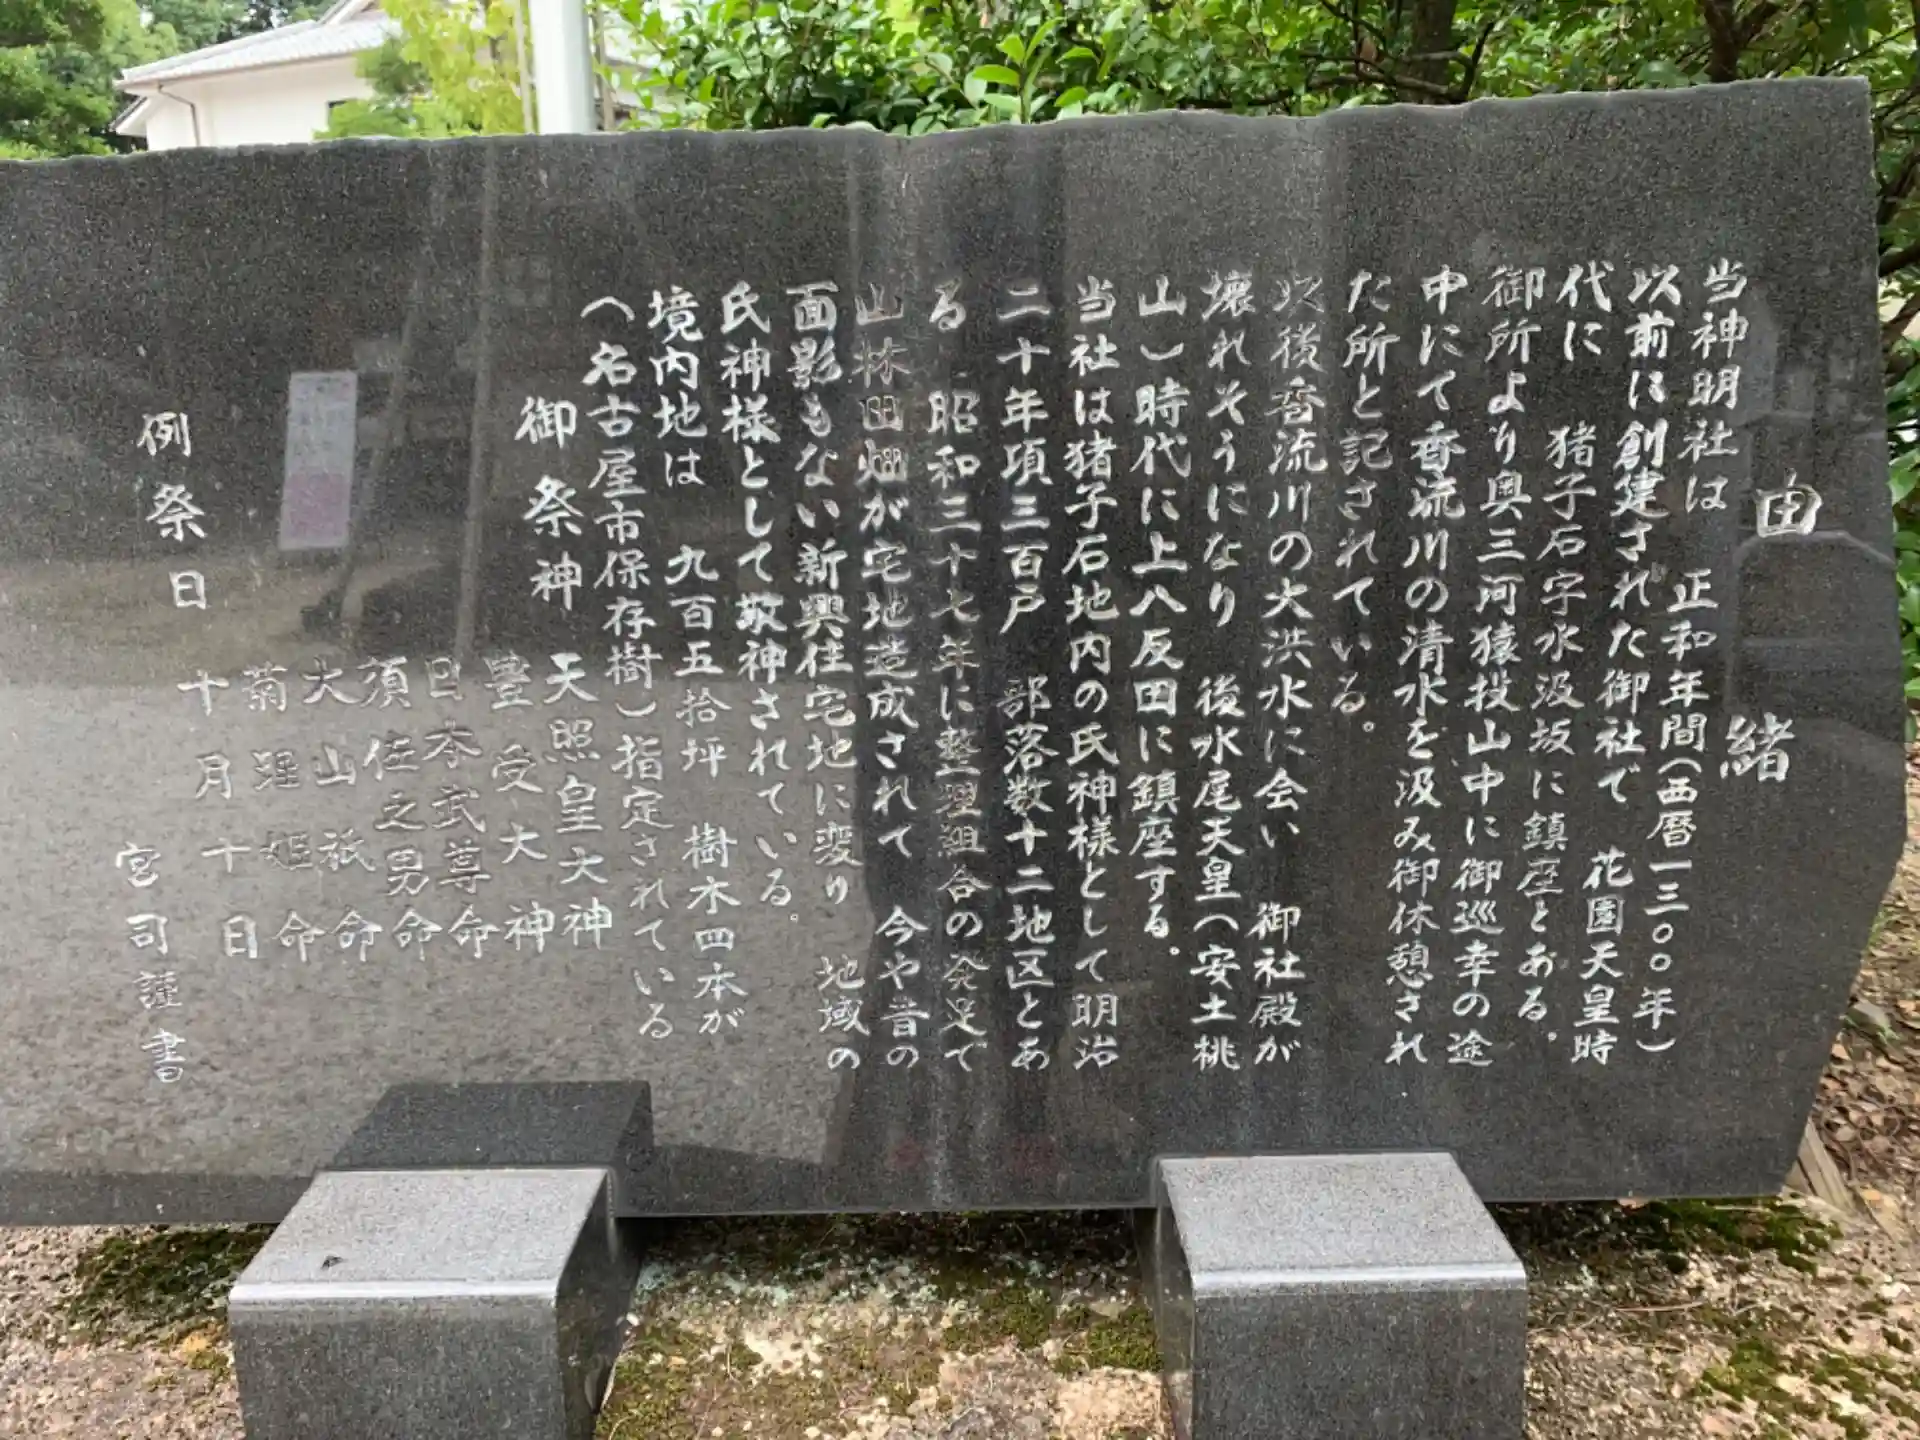 由緒
当神明社は　正和年間(西暦一三〇〇年)
以前に創建された御社で　花園天皇時
代に　猪子石字水汲坂に鎮座とある。
御所より奥三河猿投山中に御巡幸の途
中にて香流川の清水を汲み御休憩され
た所と記されている。
以後香流川の大洪水に会い　御社殿が
壊れそうになり　後水尾天皇(安土桃
山)時代に上八反田に鎮座する。
当社は猪子石地内の氏神様として明治
二十年項三百戸　部落数十二地区とあ
る　昭和三十七年に整理組合の発足で
山林田畑が宅地造成されて　今や昔の
面影もない新興住宅地に変り　地域の
氏神様として敬神されている。
境内地は　九百五拾坪　樹木四本が
(名古屋市保存樹)指定されている
御祭神　天照皇大神
豊受大神
日本武尊命
須佐之男命
大山祇命
菊理姫命
例祭日　十月十日
宮司謹書